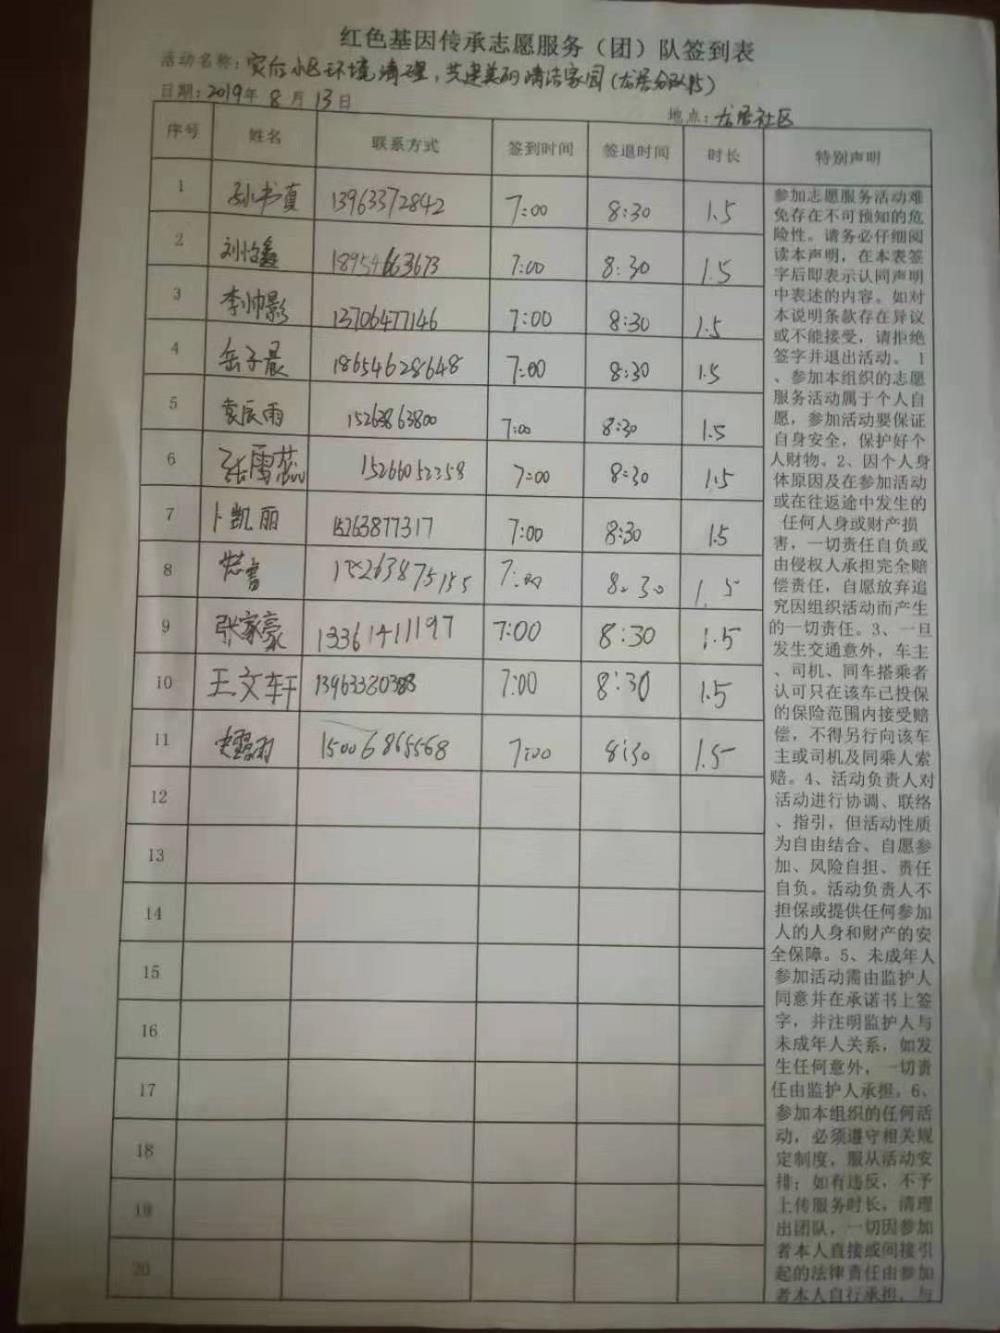 红色基因传承志愿服务（团）队签到表
活动名称：灾后小区环境清理，共建美丽清洁家园（龙居分队）
日期：2019年8月13日
地点：龙居社区
序号 姓名 联系方式 签到时间 签退时间 时长 特别声明
1 孙书真 13963372842 7:00 8:30 1.5
2 刘怡鑫 18954663673 7:00 8:30 1.5
3 李帅影 13706477146 7:00 8:30 1.5
4 岳子晨 18654628648 7:00 8:30 1.5
5 袁辰雨 15263863800 7:00 8:30 1.5
6 张雪蕊 15266052358 7:00 8:30 1.5
7 卜凯丽 15263877317 7:00 8:30 1.5
8 15263875155 7:00 8:30 1.5
9 张家豪 13361411197 7:00 8:30 1.5
10 王文轩 13963380388 7:00 8:30 1.5
11 15006865568 7:00 8:30 1.5
12
13
14
15
16
17
18
19
20
参加志愿服务活动难
免存在不可预知的危
险性。请务必仔细阅
读本声明，在本表签
字后即表示认同声明
中表述的内容。如对
本说明条款存在异议
或不能接受，请拒绝
签字并退出活动。1
、参加本组织的志愿
服务活动属于个人自
愿，参加活动要保证
自身安全，保护好个
人财物。2、因个人身
体原因及在参加活动
或在往返途中发生的
任何人身或财产损
害，一切责任自负或
由侵权人承担完全赔
偿责任，自愿放弃追
究因组织活动而产生
的一切责任。3、一旦
发生交通意外，车主
、司机、同车搭乘者
认可只在该车已投保
的保险范围内接受赔
偿，不得另行向该车
主或司机及同乘人索
赔。4、活动负责人对
活动进行协调、联络
、指引，但活动性质
为自由结合、自愿参
加、风险自担、责任
自负。活动负责人不
担保或提供任何参加
人的人身和财产的安
全保障。5、未成年人
参加活动需由监护人
同意并在承诺书上签
字，并注明监护人与
未成年人关系，如发
生任何意外，一切责
任由监护人承担。6、
参加本组织的任何活
动，必须遵守相关规
定制度，服从活动安
排；如有违反，不予
上传服务时长，清理
出团队，一切因参加
者本人直接或间接引
起的法律责任由参加
者本人自行承担，与